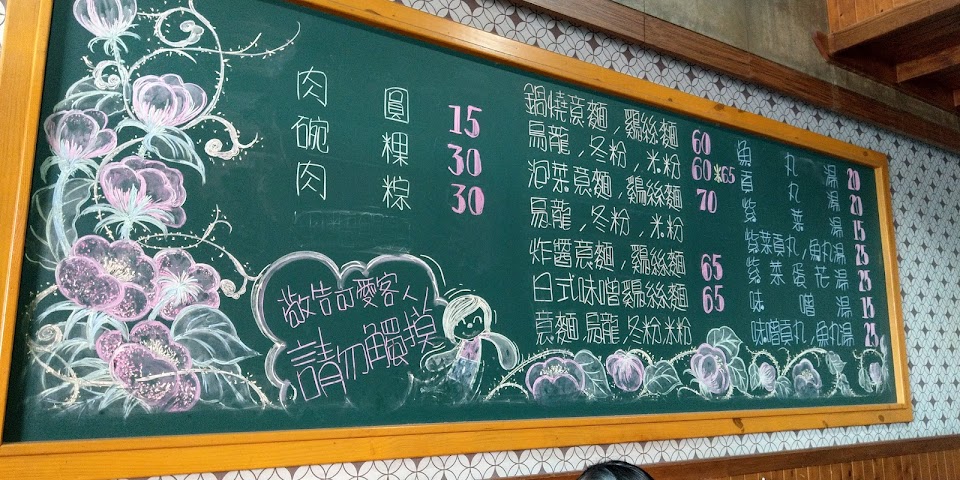 肉圓 15
碗粿 30
肉粽 30
敬告可愛客人
請勿觸摸
鍋燒意麵,鷄絲麵 60
烏龍,冬粉,米粉 60 米65
泡菜意麵,鷄絲麵 70
烏龍,冬粉,米粉
炸醬意麵,鷄絲麵 65
日式味噌鷄絲麵 65
意麵,烏龍,冬粉,米粉
魚丸湯 20
貢丸湯 20
紫菜湯 15
紫菜貢丸,魚丸湯 25
紫菜蛋花湯 25
味噌湯 15
味噌貢丸,魚丸湯 25